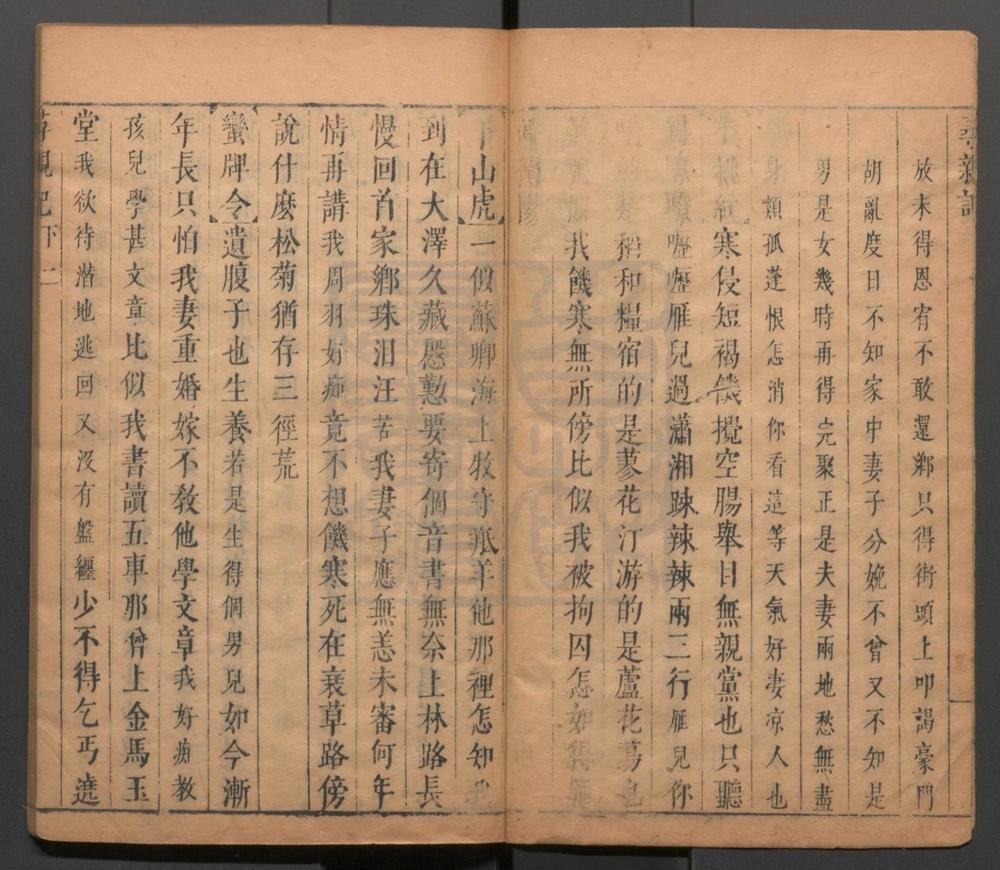 尋親記
放未得恩宥不敢還鄉只得街頭上叩謁豪門
胡亂度日不知家中妻子分娩不曾又不知是
男是女幾時再得完聚正是夫妻兩地愁無盡
身類孤蓬恨怎消你看這等天氣好凄凉人也
桃紅寒侵短褐饑攪空腸舉目無親黨也只聽
嚦嚦雁兒過瀟湘踈辣辣兩三行雁兒你
是稻和糧宿的是蓼花汀游的是蘆花蕩也
似我饑寒無所傍比似我被拘囚怎如
山虎一似蘇卿海上牧守羝羊他那裡怎知
到在大澤久藏慇懃要寄個音書無奈上林路長
慢回首家鄉珠泪汪苦我妻子應無恙未審何年
情再講我周羽好痴竟不想饑寒死在衰草路傍
說什麼松菊猶存三徑荒
蠻牌令遺腹子也生養若是生得個男兒如今漸
年長只怕我妻重婚嫁不敎他學文章我好痴教
孩兒學甚文章比似我書讀五車那曾上金馬玉
堂我欲待潛地逃回又没有盤纏少不得乞丐遶
尋親記下 二